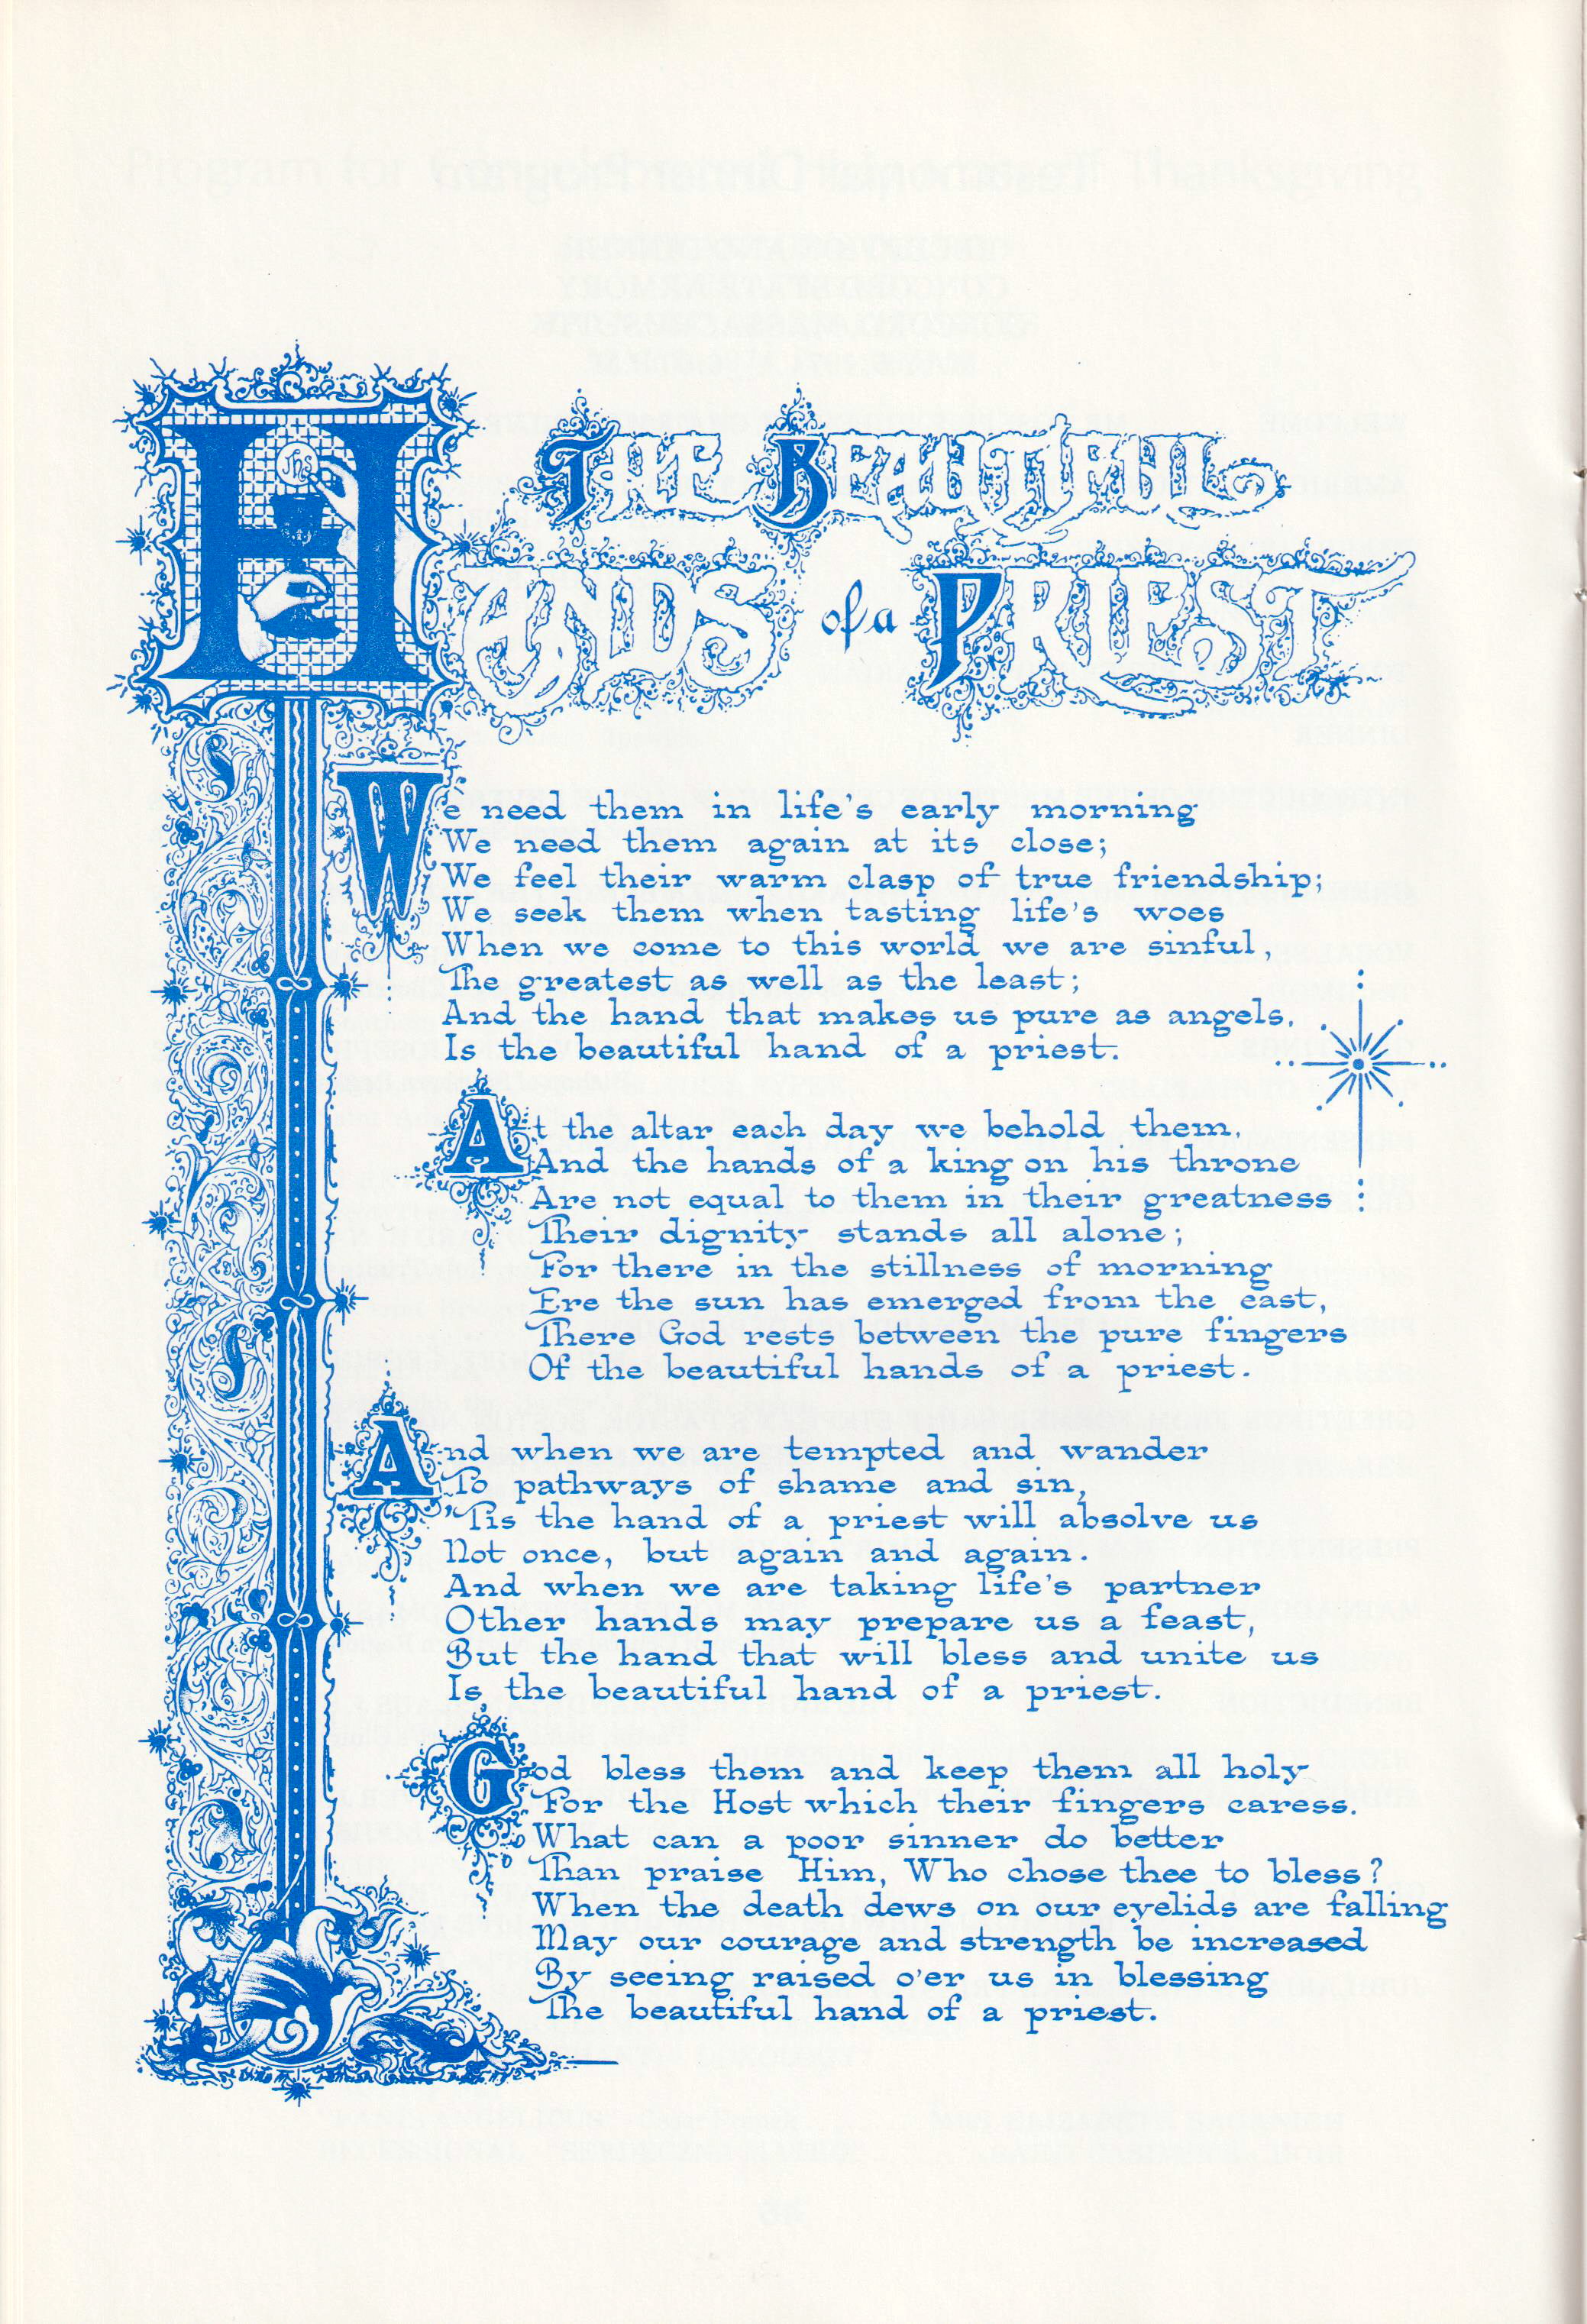 The Beautiful
Hands of a Priest
We need them in life's early morning
We need them again at its close;
We feel their warm clasp of true friendship;
We seek them when tasting life's woes
When we come to this world we are sinful,
The greatest as well as the least;
And the hand that makes us pure as angels,
Is the beautiful hand of a priest.
At the altar each day we behold them,
And the hands of a king on his throne
Are not equal to them in their greatness
Their dignity stands all alone;
For there in the stillness of morning
Ere the sun has emerged from the east,
There God rests between the pure fingers
Of the beautiful hands of a priest.
And when we are tempted and wander
To pathways of shame and sin,
'Tis the hand of a priest will absolve us
Not once, but again and again.
And when we are taking life's partner
Other hands may prepare us a feast,
But the hand that will bless and unite us
Is the beautiful hand of a priest.
God bless them and keep them all holy
For the Host which their fingers caress.
What can a poor sinner do better
Than praise Him, Who chose thee to bless?
When the death dews on our eyelids are falling
May our courage and strength be increased
By seeing raised o'er us in blessing
The beautiful hand of a priest.